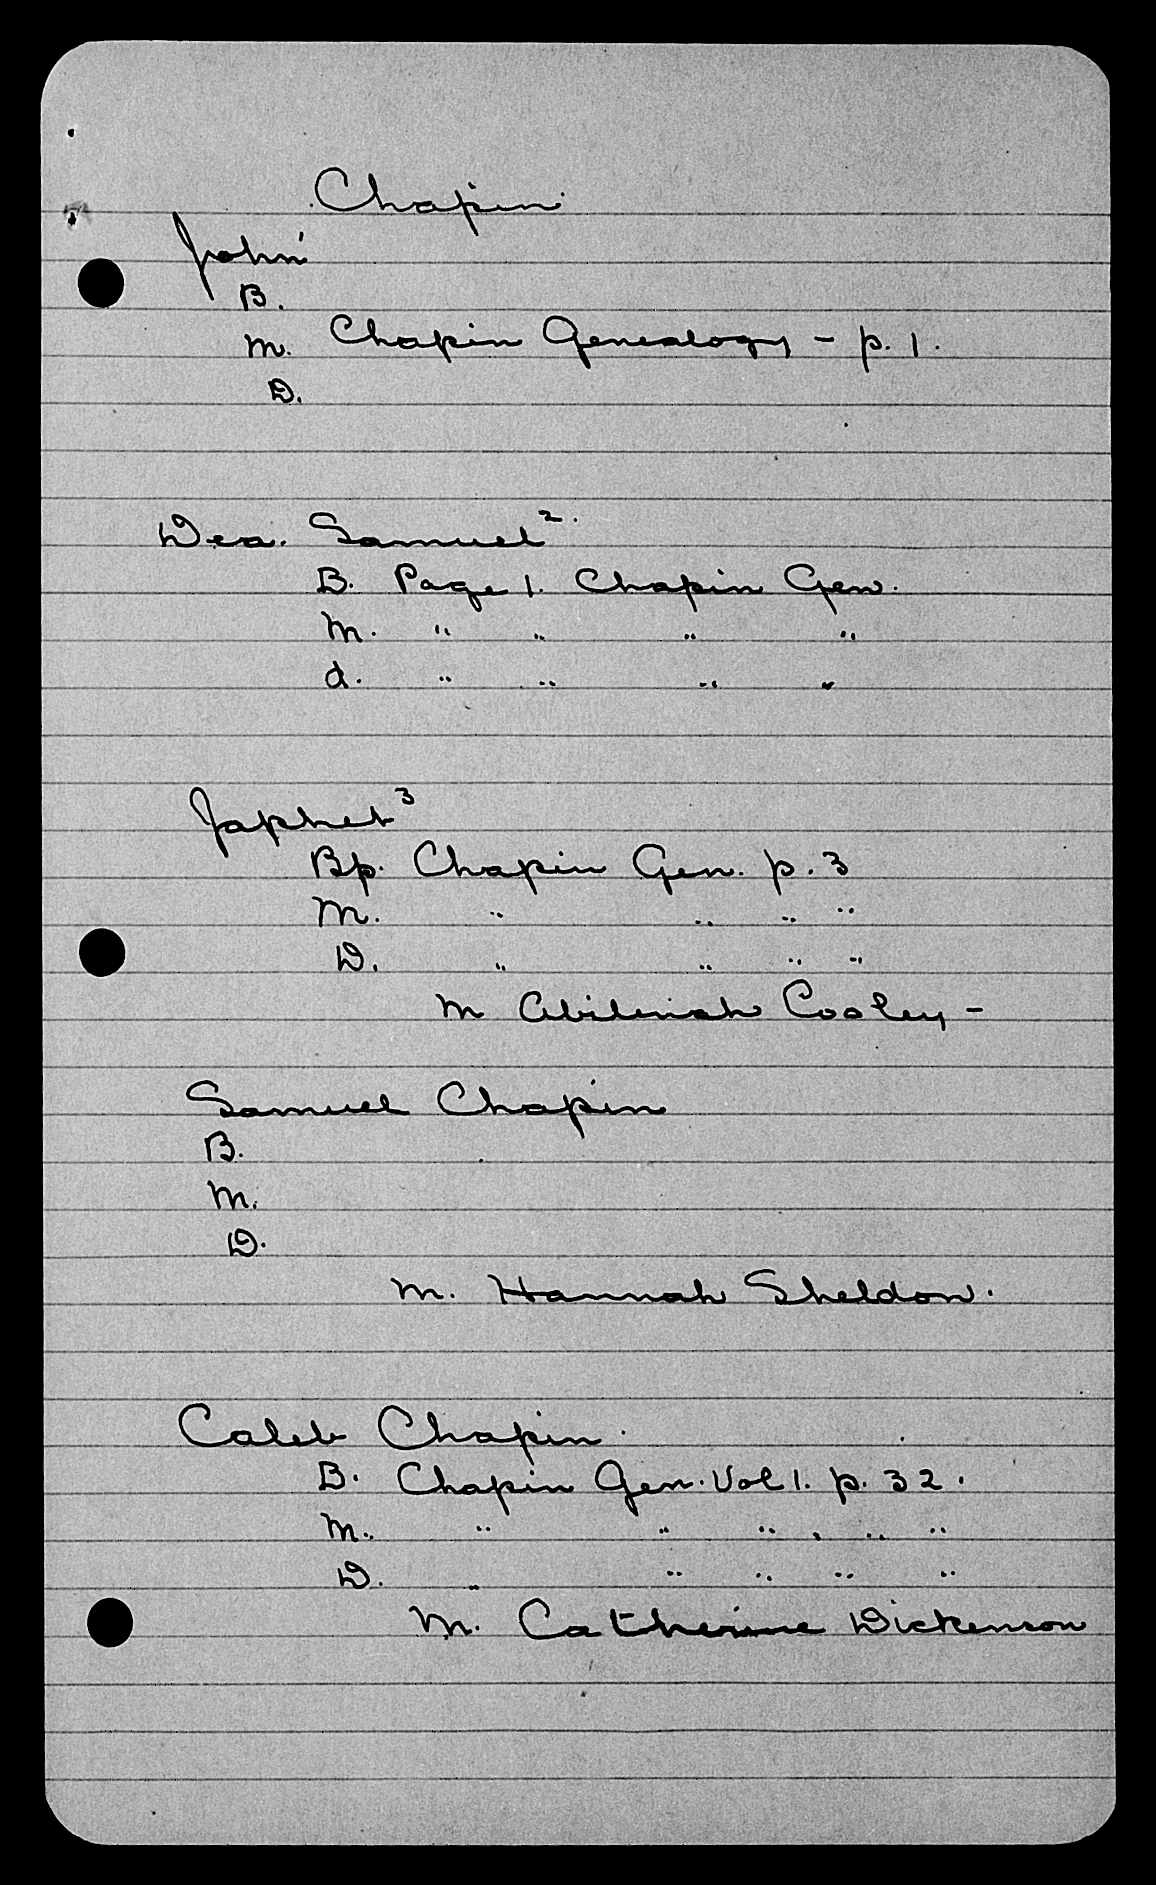 Chapin
John'
B.
M. Chapin Genealogy - p. 1.
D.
Dea. Samuel²
B. Page 1. Chapin Gen.
M. " " " "
d. " " " "
Japhet³
Bp. Chapin Gen. p. 3
M. " " " "
D. " " " "
M Abilenah Cooley -
Samuel Chapin
B.
M.
D.
M. Hannah Sheldon.
Caleb Chapin.
B. Chapin Gen. Vol 1. p. 32.
M. " " " " "
D. " " " " "
M. Catherine Dickenson